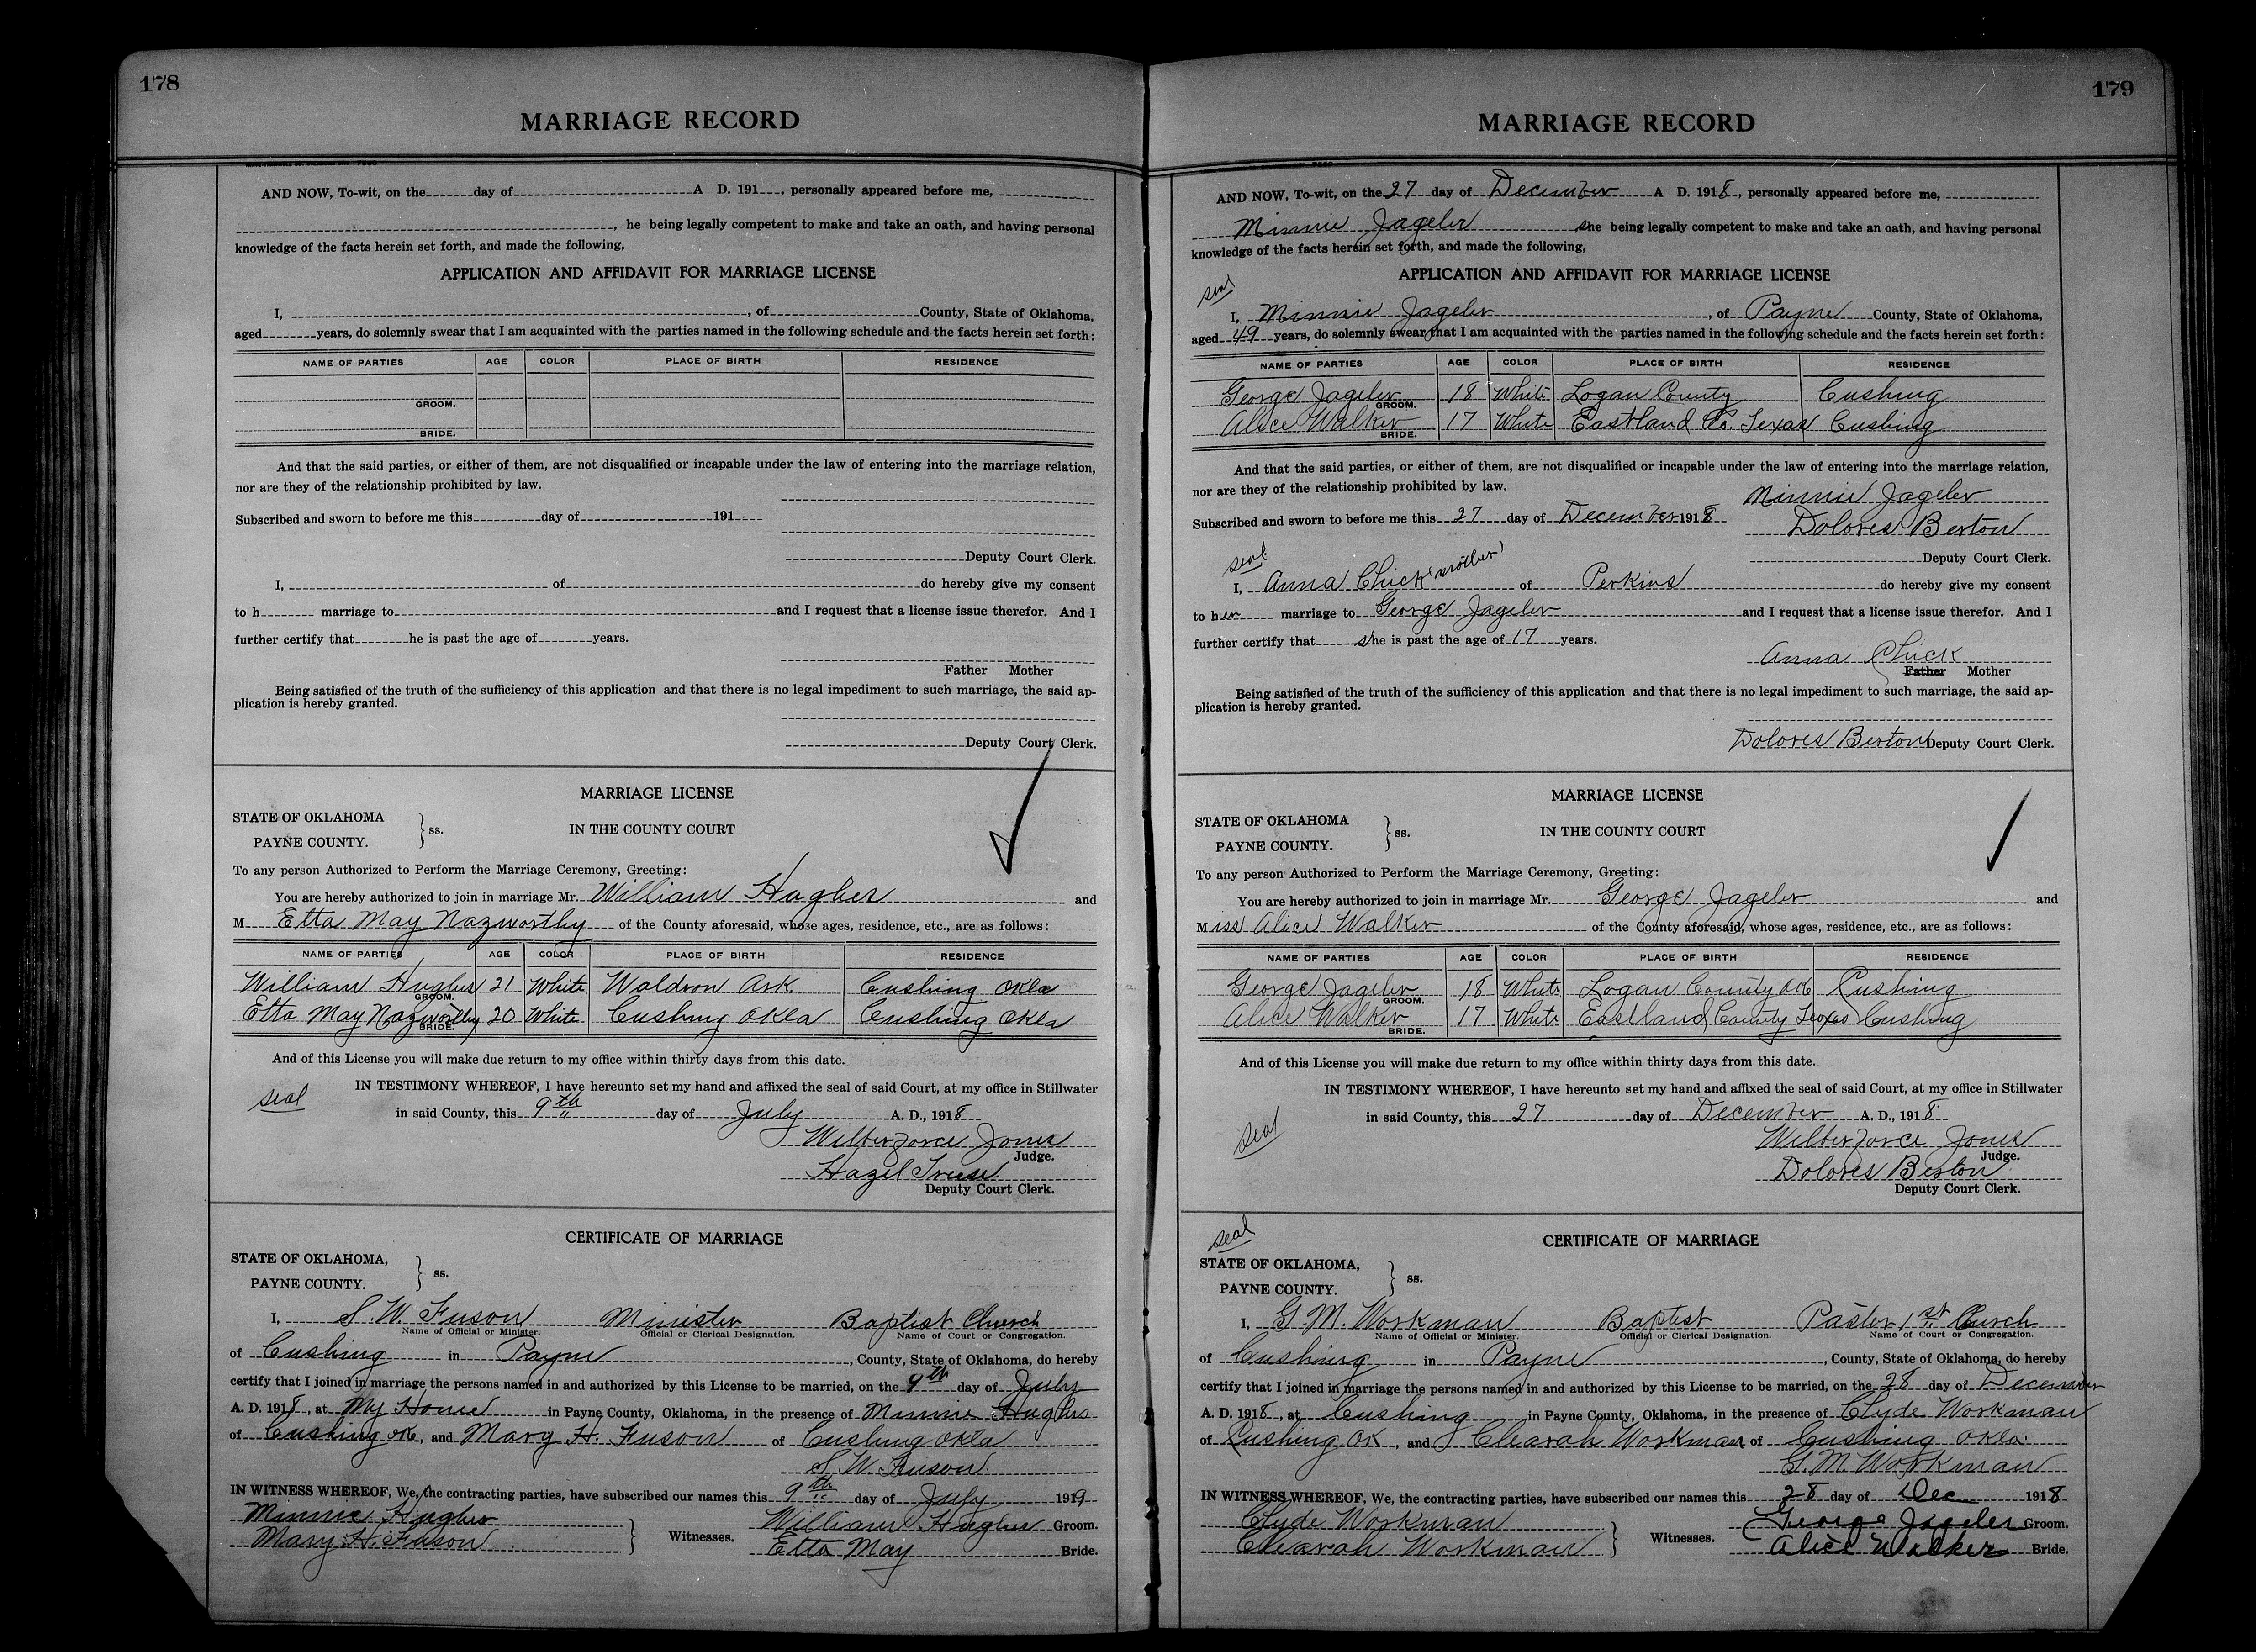 178
MARRIAGE RECORD
AND NOW, To-wit, on the day of A D. 191 , personally appeared before me,
, he being legally competent to make and take an oath, and having personal
knowledge of the facts herein set forth, and made the following,
APPLICATION AND AFFIDAVIT FOR MARRIAGE LICENSE
I, , of County, State of Oklahoma,
aged years, do solemnly swear that I am acquainted with the parties named in the following schedule and the facts herein set forth:
NAME OF PARTIES AGE COLOR PLACE OF BIRTH RESIDENCE
GROOM.
BRIDE.
And that the said parties, or either of them, are not disqualified or incapable under the law of entering into the marriage relation,
nor are they of the relationship prohibited by law.
Subscribed and sworn to before me this day of 191
Deputy Court Clerk.
I, of do hereby give my consent
to h marriage to and I request that a license issue therefor. And I
further certify that he is past the age of years.
Father Mother
Being satisfied of the truth of the sufficiency of this application and that there is no legal impediment to such marriage, the said ap-
plication is hereby granted.
Deputy Court Clerk.
MARRIAGE LICENSE
STATE OF OKLAHOMA
PAYNE COUNTY. } ss. IN THE COUNTY COURT
To any person Authorized to Perform the Marriage Ceremony, Greeting:
You are hereby authorized to join in marriage Mr. William Hughes and
M Etta May Nazworthy of the County aforesaid, whose ages, residence, etc., are as follows:
NAME OF PARTIES AGE COLOR PLACE OF BIRTH RESIDENCE
William Hughes GROOM. 21 White Waldron Ark. Cushing Okla
Etta May Nazworthy BRIDE. 20 White Cushing Okla Cushing Okla
And of this License you will make due return to my office within thirty days from this date.
seal IN TESTIMONY WHEREOF, I have hereunto set my hand and affixed the seal of said Court, at my office in Stillwater
in said County, this 9th day of July A. D., 1918
Wilberforce Jones
Judge.
Hazel Truse
Deputy Court Clerk.
CERTIFICATE OF MARRIAGE
STATE OF OKLAHOMA,
PAYNE COUNTY. } ss.
I, S. W. Fuson Minister Baptist Church
Name of Official or Minister. Official or Clerical Designation. Name of Court or Congregation.
of Cushing in Payne , County, State of Oklahoma, do hereby
certify that I joined in marriage the persons named in and authorized by this License to be married, on the 9th day of July
A. D. 1918, at My Home in Payne County, Oklahoma, in the presence of Minnie Hughes
of Cushing Ok, and Mary H. Fuson of Cushing Okla
S. W. Fuson.
IN WITNESS WHEREOF, We, the contracting parties, have subscribed our names this 9th day of July 1919
Minnie Hughes } Witnesses. William Hughes Groom.
Mary H. Fuson Etta May Bride.
179
MARRIAGE RECORD
AND NOW, To-wit, on the 27 day of December A D. 1918, personally appeared before me,
Minnie Jageler she being legally competent to make and take an oath, and having personal
knowledge of the facts herein set forth, and made the following,
APPLICATION AND AFFIDAVIT FOR MARRIAGE LICENSE
seal
I, Minnie Jageler , of Payne County, State of Oklahoma,
aged 49 years, do solemnly swear that I am acquainted with the parties named in the following schedule and the facts herein set forth:
NAME OF PARTIES AGE COLOR PLACE OF BIRTH RESIDENCE
George Jageler GROOM. 18 White Logan County Cushing
Alice Walker BRIDE. 17 White Eastland Co. Texas Cushing
And that the said parties, or either of them, are not disqualified or incapable under the law of entering into the marriage relation,
nor are they of the relationship prohibited by law.
Minnie Jageler
Subscribed and sworn to before me this 27 day of December 1918 Dolores Berton
Deputy Court Clerk.
seal
I, Anna Chick (mother) of Perkins do hereby give my consent
to her marriage to George Jageler and I request that a license issue therefor. And I
further certify that she is past the age of 17 years.
Anna Chick
Father Mother
Being satisfied of the truth of the sufficiency of this application and that there is no legal impediment to such marriage, the said ap-
plication is hereby granted.
Dolores Berton Deputy Court Clerk.
MARRIAGE LICENSE
STATE OF OKLAHOMA
PAYNE COUNTY. } ss. IN THE COUNTY COURT
To any person Authorized to Perform the Marriage Ceremony, Greeting:
You are hereby authorized to join in marriage Mr. George Jageler and
Miss Alice Walker of the County aforesaid, whose ages, residence, etc., are as follows:
NAME OF PARTIES AGE COLOR PLACE OF BIRTH RESIDENCE
George Jageler GROOM. 18 White Logan County Ok Cushing
Alice Walker BRIDE. 17 White Eastland County Texas Cushing
And of this License you will make due return to my office within thirty days from this date.
IN TESTIMONY WHEREOF, I have hereunto set my hand and affixed the seal of said Court, at my office in Stillwater
seal in said County, this 27 day of December A. D., 1918
Wilberforce Jones
Judge.
Dolores Berton
Deputy Court Clerk.
seal
CERTIFICATE OF MARRIAGE
STATE OF OKLAHOMA,
PAYNE COUNTY. } ss.
I, G. M. Workman Baptist Paster 1st Church
Name of Official or Minister. Official or Clerical Designation. Name of Court or Congregation.
of Cushing in Payne , County, State of Oklahoma, do hereby
certify that I joined in marriage the persons named in and authorized by this License to be married, on the 28 day of December
A. D. 1918, at Cushing in Payne County, Oklahoma, in the presence of Clyde Workman
of Cushing Ok , and Clearah Workman of Cushing Okla.
G. M. Workman
IN WITNESS WHEREOF, We, the contracting parties, have subscribed our names this 28 day of Dec 1918
Clyde Workman } Witnesses. George Jageler Groom.
Clearah Workman Alice Walker Bride.